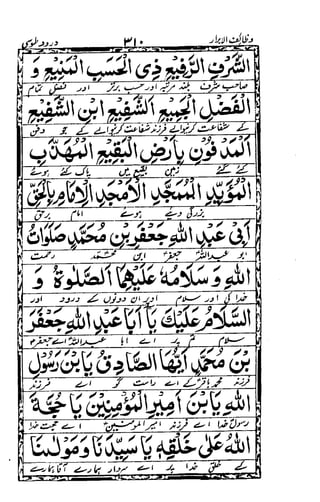 وظائف الابرار ۳۱۰ درود طوسی
الشَّرَفِ الرَّفِيْعِ ذِي الْحَسَبِ الْمَنِيْعِ وَ
صاحب شرف بلند مرتبہ اور حسب برتر اور فضل تمام
الْفَضْلِ الْجَمِيْعِ الشَّفِيْعِ ابْنِ الشَّفِيْعِ
کے شفاعت کرنیوالے فرزند شفاعت کرنیوالے کے جو دفن
الْمَدْفُوْنِ بِاَرْضِ الْبَقِيْعِ الْمُهَذَّبِ
کئے گئے زمین بقیع میں پاک کئے ہوئے
الْمُؤَيَّدِ الْمُمَجَّدِ الْاَمْجَدِ الْاِمَامِ بِالْحَقِّ
بزرگی دیئے ہوئے امام برحق
اَبِيْ عَبْدِ اللهِ جَعْفَرِ بْنِ مُحَمَّدٍ صَلَوَاتُ
ابو عبداللہ جعفر ابن محمد رحمت
اللهِ وَ سَلَامُهُ عَلَيْهِمَا الصَّلٰوةُ وَ
خدا کی اور سلام اوپر ان دونوں کے درود اور
السَّلَامُ عَلَيْكَ يَا اَبَا عَبْدِ اللهِ جَعْفَرَ
سلام تم پر اے ابا عبداللہ اے جعفر
بْنَ مُحَمَّدٍ اَيُّهَا الصَّادِقُ يَا بْنَ رَسُوْلِ
فرزند محمد باقر کے اے راست گو اے فرزند
اللهِ يَا بْنَ اَمِيْرِ الْمُؤْمِنِيْنَ يَا حُجَّةَ
رسول خدا اے فرزند امیر المومنین اے حجت خدا
اللهِ عَلٰى خَلْقِهٖ يَا سَيِّدَنَا وَ مَوْلٰىنَا
کے خلق خدا پر اے سردار ہمارے آقا ہمارے